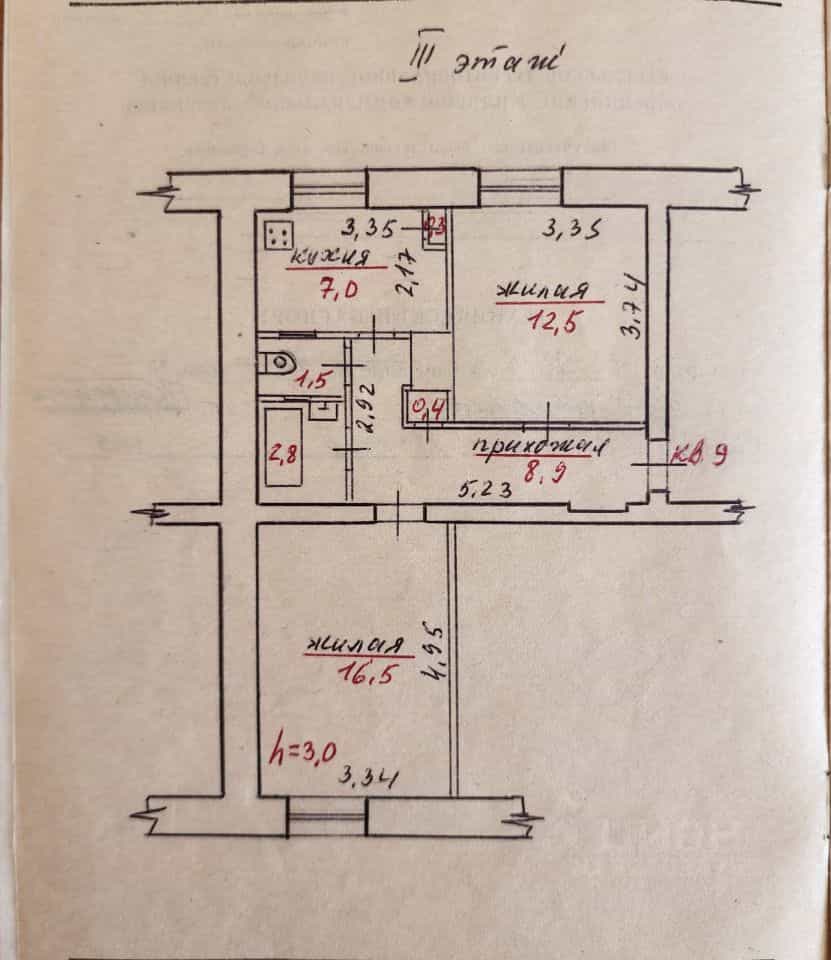 III этаж
3,35
0,3
3,35
кухня
7,0
2,17
жилая
12,5
3,74
1,5
2,92
0,4
2,8
прихожая
8,9
кв 9
5,23
жилая
16,5
4,95
h=3,0
3,34